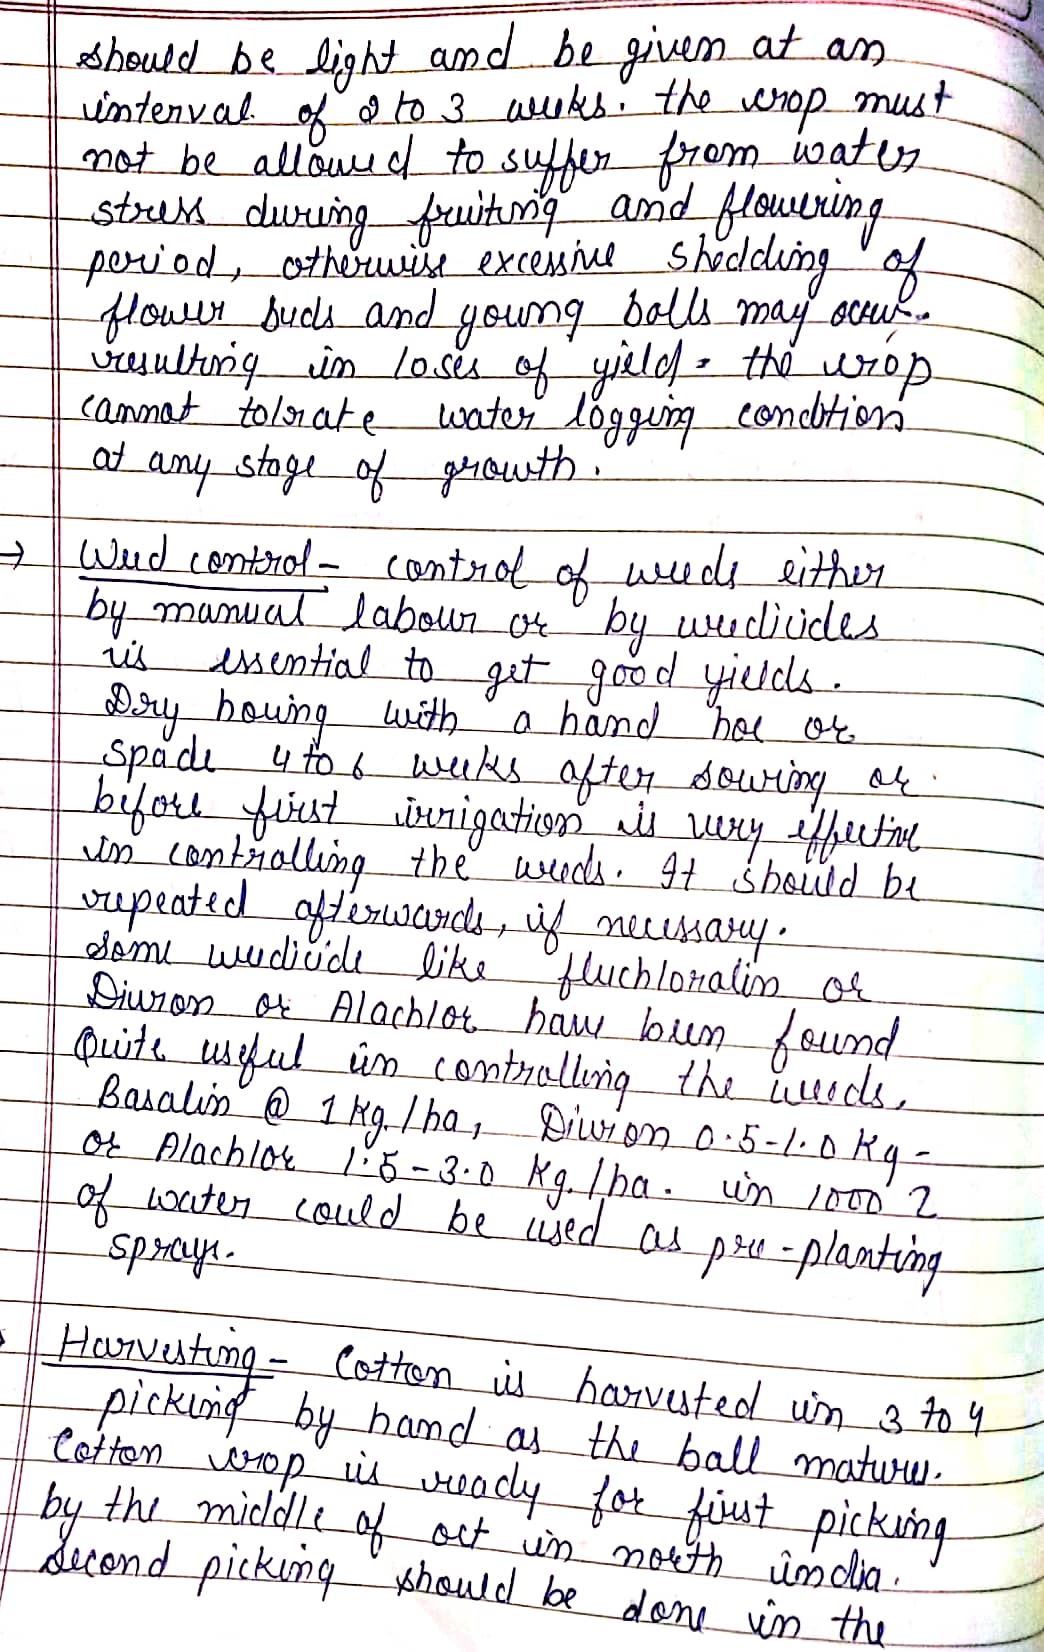 should be light and be given at an
interval of 2 to 3 weeks. the crop must
not be allowed to suffer from water
stress during fruiting and flowering
period, otherwise excessive shedding of
flower buds and young balls may occur.
resulting in loses of yield. the crop
cannot tolrate water logging condition
at any stage of growth.
→ Weed control - control of weeds either
by manual labour or by weedicides
is essential to get good yields.
Dry hoeing with a hand hoe or
spade 4 to 6 weeks after sowing or
before first irrigation is very effective
in controlling the weeds. It should be
repeated afterwards, if necessary.
Some weedicide like fluchloralin or
Diuron or Alachlor have been found
Quite useful in controlling the weeds.
Basalin @ 1 kg./ha, Diuron 0.5-1.0 kg-
or Alachlor 1.5-3.0 kg./ha. in 1000 l
of water could be used as pre-planting
sprays.
Harvesting - Cotton is harvested in 3 to 4
picking by hand as the ball matures.
Cotton crop is ready for first picking
by the middle of oct in north india.
Second picking should be done in the